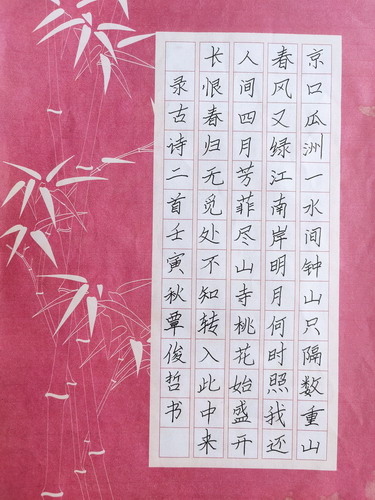 京口瓜洲一水间钟山只隔数重山
春风又绿江南岸明月何时照我还
人间四月芳菲尽山寺桃花始盛开
长恨春归无觅处不知转入此中来
录古诗二首壬寅秋覃俊哲书